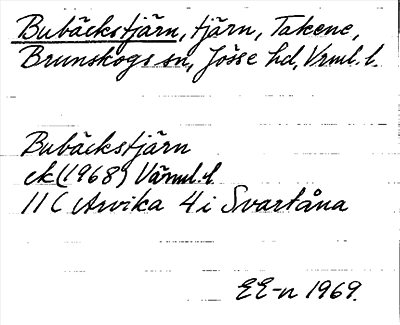 Bubäckstjärn, tjärn, Takene,
Brunskogs sn, Jösse hd, Vrml. l.
Bubäckstjärn
ek (1968) Värml. l.
11 C Arvika 4 i Svartåna
EE-n 1969.